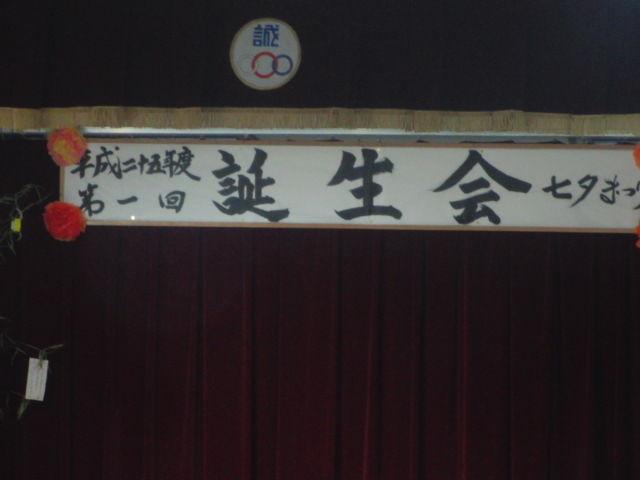 誠
平成二十五年度
第一回
誕生会
七夕まつ